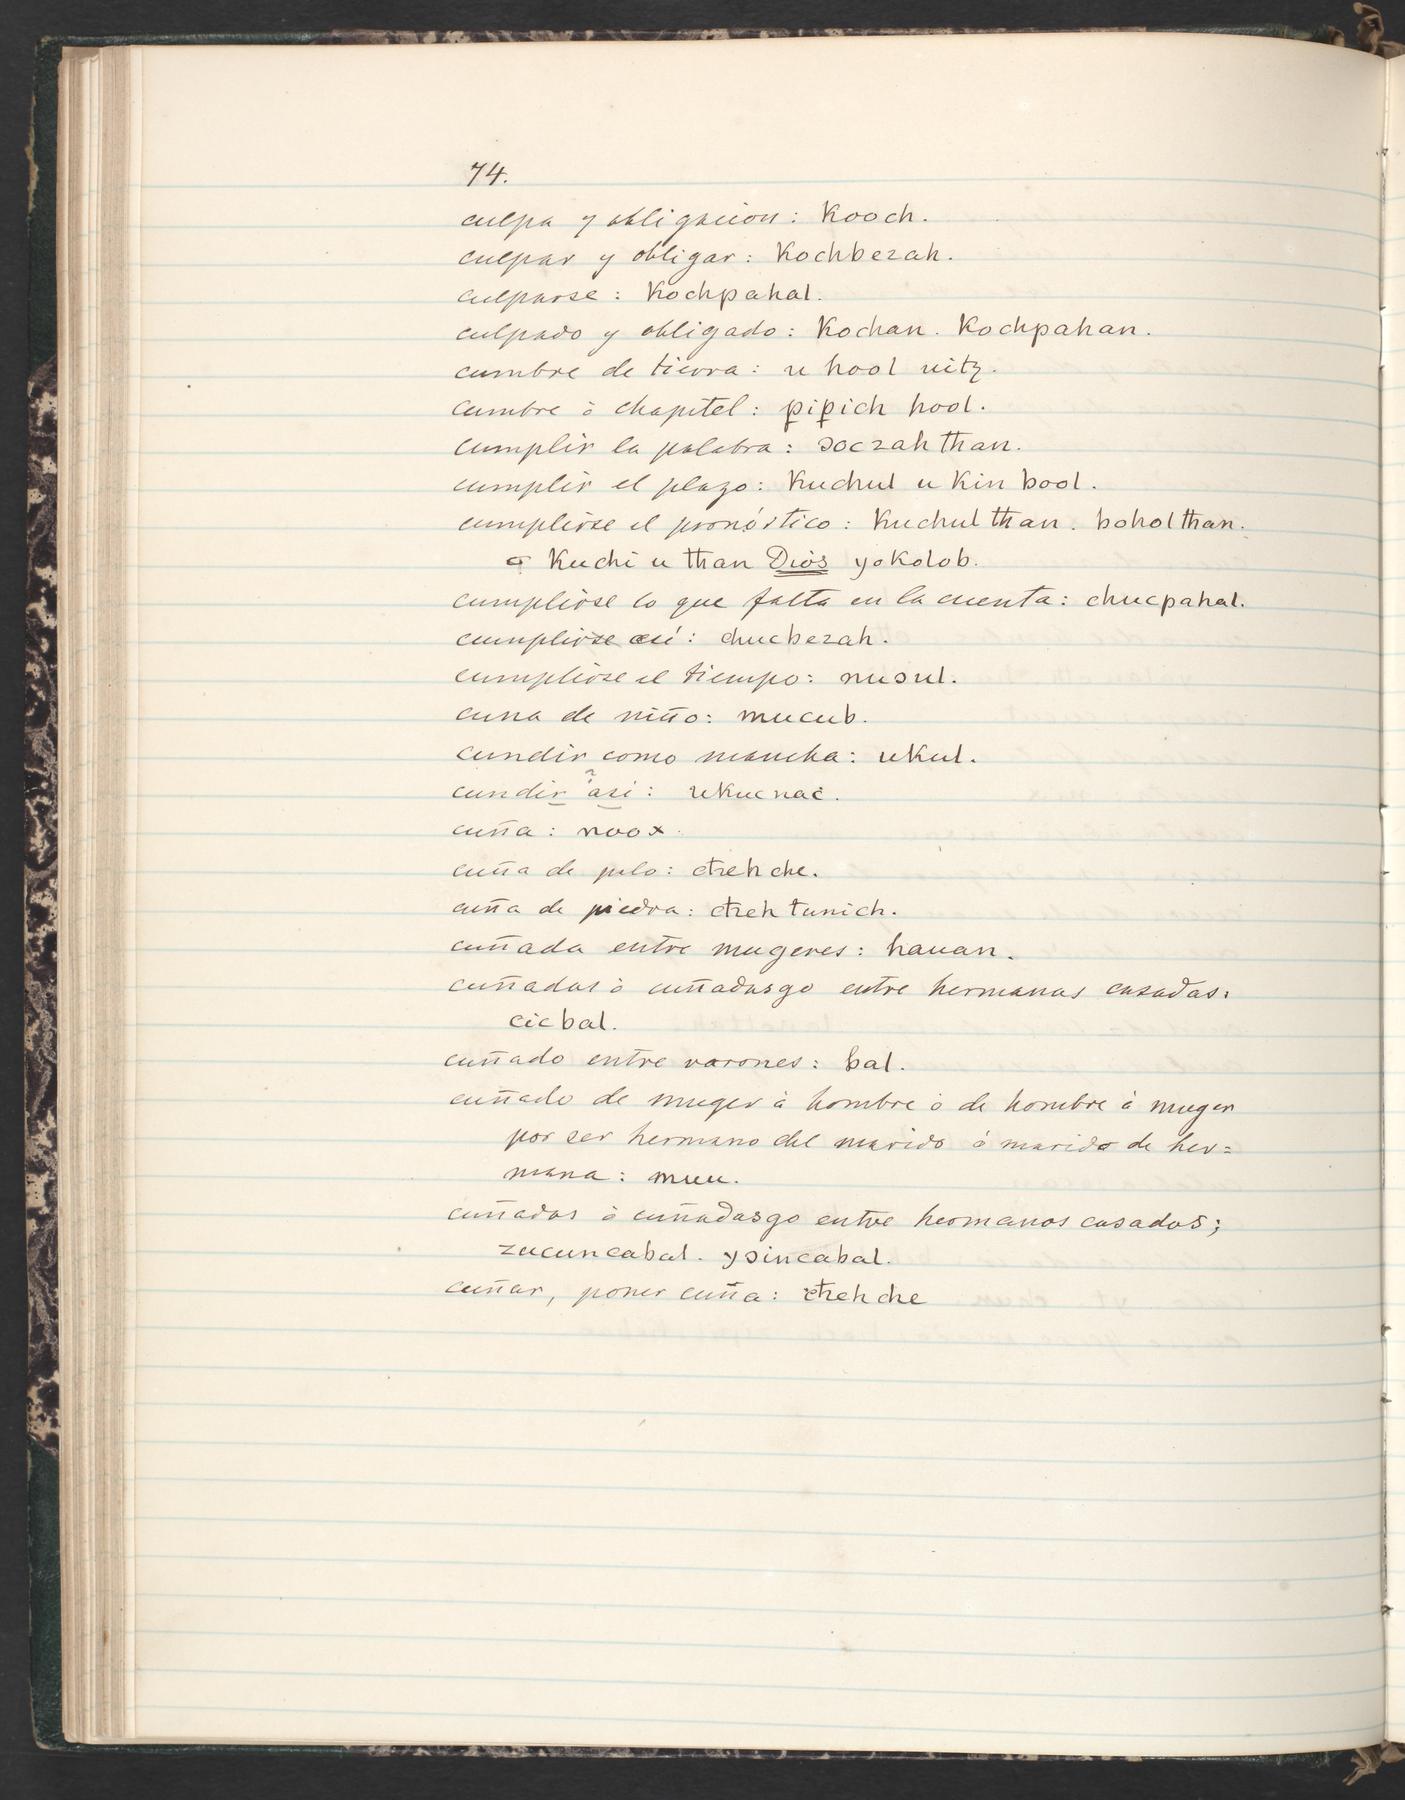 74.
culpa y obligacion: Kooch.
culpar y obligar: Kochbezah.
culparse: Kochpahal.
culpado y obligado: Kochan. Kochpahan.
cumbre de tierra: u hool uitz.
cumbre ò chapitel: ꝑiꝑich hool.
cumplir la palabra: ɔoczah than.
cumplir el plazo: Kuchul u Kin bool.
cumplirse el pronóstico: Kuchul than. bohol than.
Kuchi u than Diòs yoKolob.
cumplirse lo que falta en la cuenta: chucpahal.
cumplirse así: chucbezah.
cumplirse el tiempo: nuɔul.
cuna de niño: mucub.
cundir como mancha: uKul.
cundir así: uKucnac.
cuña: noox.
cuña de palo: cħeh che.
cuña de piedra: cħeh tunich.
cuñada entre mugeres: hauan.
cuñadas ò cuñadasgo entre hermanas casadas:
cicbal.
cuñado entre varones: bal.
cuñado de muger à hombre ò de hombre à muger
por ser hermano del marido ó marido de her=
mana: muu.
cuñados ò cuñadasgo entre hermanos casados;
zucuncabal. yɔincabal.
cuñar, poner cuña: cħeh che